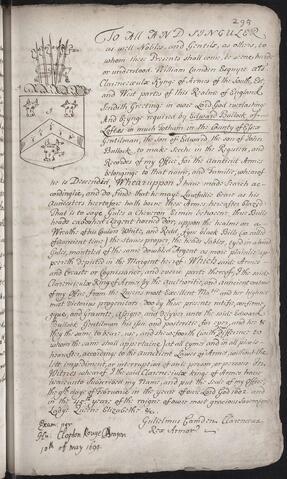 295
To All AND SINGULER
as well Nobles, and Gentils, as others, to
whom these Presents shall come to be seene heard
or understood William Camden Esquyer als
Clarencieulx Kynge of Armes of the South, Est,
and West partes of this Realme of England
Sendith Greeting in our Lord God everlasting
And beyng required by Edward Bullock of
Loftes in much Totham in the County of Essex
Gentilman, the son of Edward the son of John
Bullock, to make Search in the Registers, and
Recordes of my Office for the auncient Armes
belonginge to that name, and Familie, whereof
he is Descended, Wheareuppon I have made Search ac-
cordinglie, and do finde that he maye Lawfullie beare as his
Auncesters heretofore hath borne these Armes hereafter blazed
That is to saye Gules a Cheveron Ermin betweene three Bulls
heads caboshed Argent horned Or, uppon the healme on a
Wreathe of his Coulors White, and Redd, fyve black Bills (so called
of auncient time) the staves proper, the heads Sables, tyed in a band
Gules, mantled of the same doubled Argent as more plainlie ap-
peereth Depicted in the Margent hereof Which Armes
and Creaste or Cognisance, and everie parte thereof, I the said
Clarencieulx Kyng of Armes by the authoritie, and auncient custom
of my Office from the Queens most Excellent Matie and her highnes
most Victorius progenitors Doo by these presents ratifie, confirme,
give, and graunte, assigne, and
 unto the saide Edward
Bullock Gentilman his issue and posteritie for ever, and he &
they the same to beare, use, and shewe fourth (with Difference) to
whom the same shall appertayne, at all tymes and in all places
hereafter, according to the auncient Lawes of Armes, without the
lett impediment, or interruption of anie person, or persons In
Witnes whereof I the said Clarencieulx King of Armes have
hereunto Subscribed my Name, and put the Seale of my Office,
the 9th daye of Februarie in the yeare of our Lord God 1602 and
in the 45th yeare of the raigne of our most gracious Soveraigne
Ladye Queene Elizabeth &c.
Guilielmus Camden Clarenceux
Rex Armor
Exam. per
Hen: Clopton Rouge Dragon
10th of May 1698